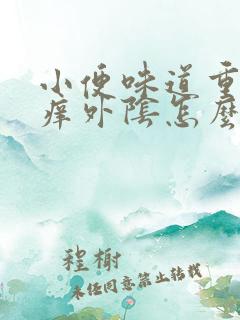 小便味道重
痒外陰怎麼
程榭
未经同意禁止转载